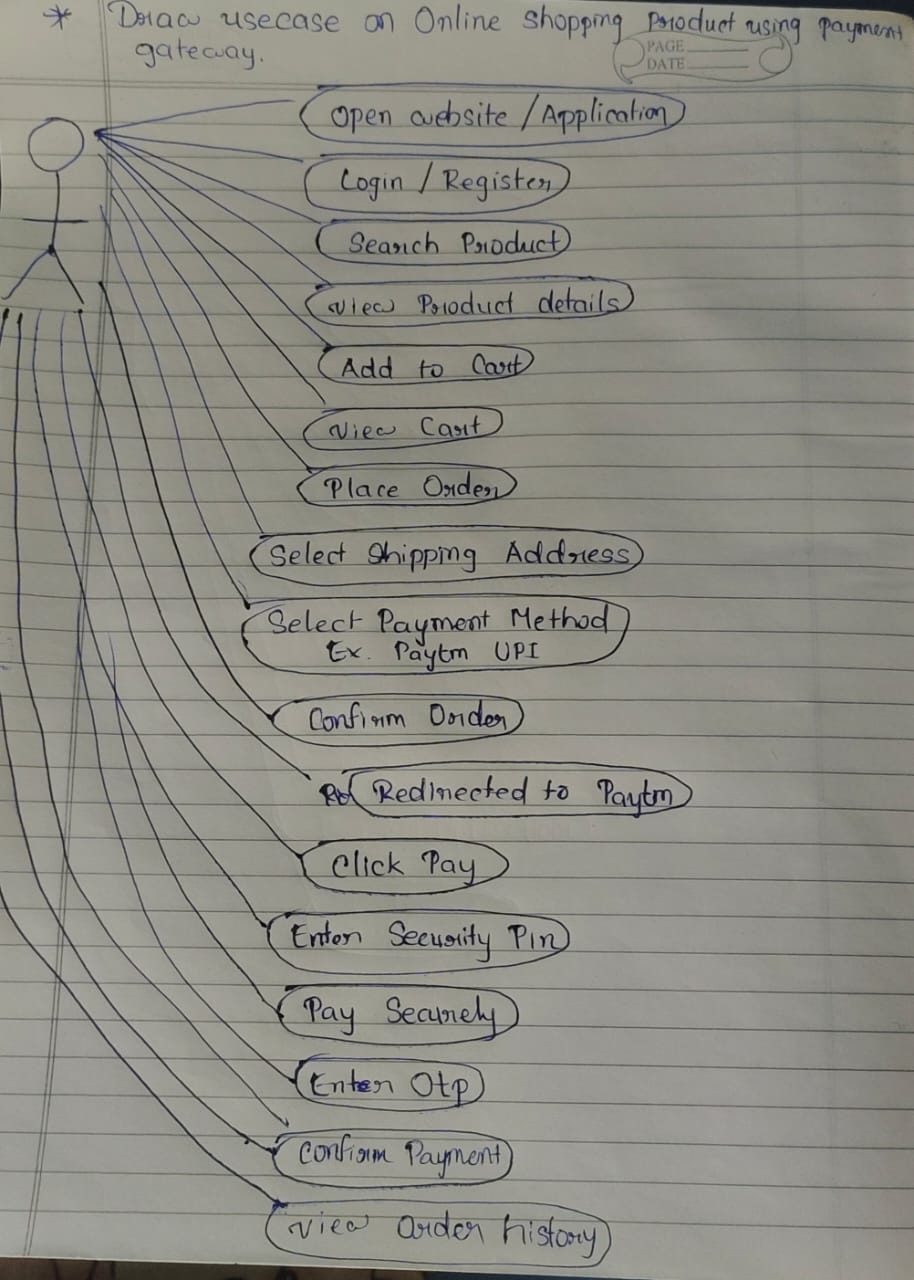 * Draw usecase on Online Shopping Product using payment
gateway.
PAGE
DATE
Open website / Application
Login / Register
Search Product
View Product details
Add to Cart
View Cart
Place Order
Select Shipping Address
Select Payment Method
Ex. Paytm UPI
Confirm Order
Redirected to Paytm
Click Pay
Enter Security Pin
Pay Securely
Enter Otp
Confirm Payment
View Order history